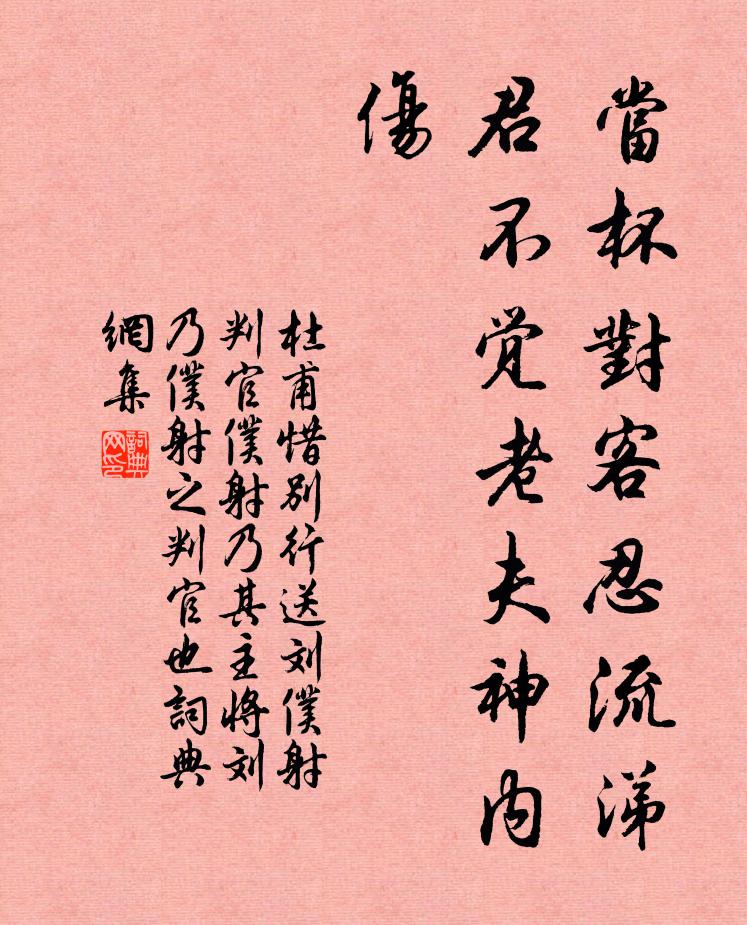 當杯對客忍流涕
君不觉老夫神内
傷
杜甫惜别行送刘僕射
判官僕射乃其主將刘
乃僕射之判官也詞典
網集
詞典
网印